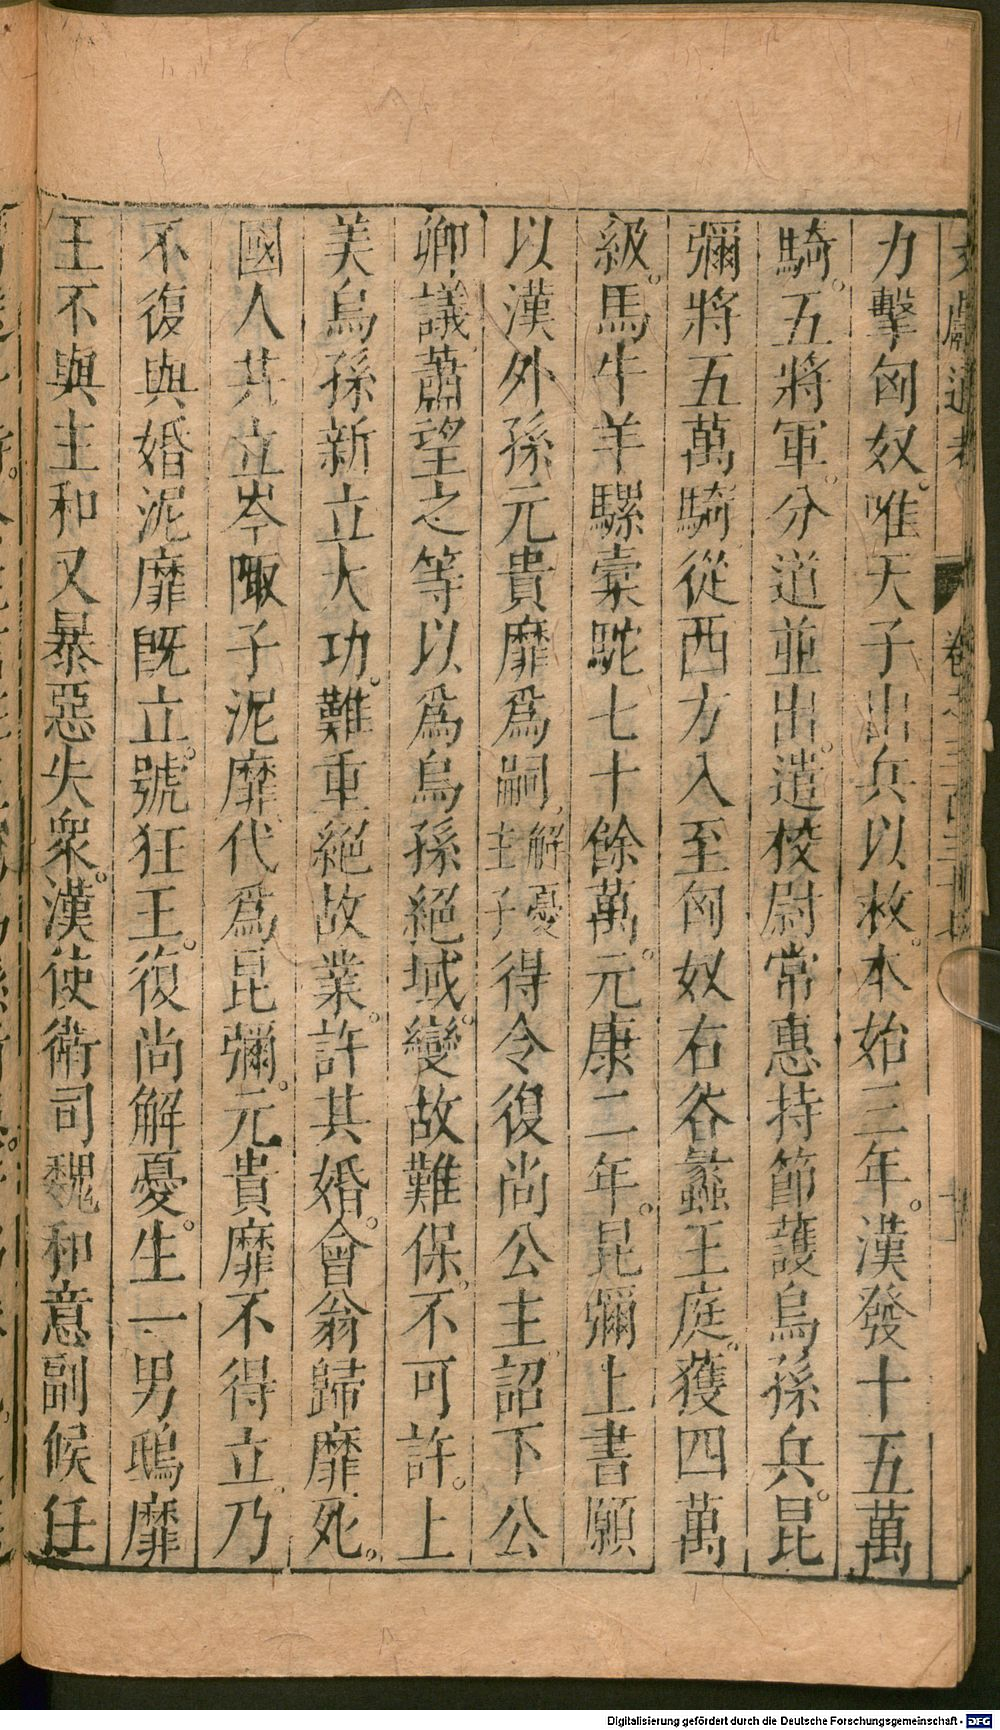 文獻通考 卷之三百三十七 十一
力擊匈奴。唯天子出兵以救。本始三年。漢發十五萬
騎。五將軍。分道並出。遣校尉常惠持節護烏孫兵。昆
彌將五萬騎從西方入至匈奴右谷蠡王庭。獲四萬
級。馬牛羊騾橐駝七十餘萬。元康二年。昆彌上書願
以漢外孫元貴靡爲嗣，解憂主子得令復尚公主詔下公
卿議蕭望之等以爲烏孫絕域。變故難保。不可許。上
美烏孫新立大功。難重絕故業。許其婚。會翁歸靡死。
國人共立岑陬子泥靡代爲昆彌。元貴靡不得立。乃
不復與婚泥靡旣立。號狂王。復尚解憂。生一男鴟靡
王不與主和又暴惡失衆。漢使衛司魏和意副候任
Digitalisierung gefördert durch die Deutsche Forschungsgemeinschaft - DFG